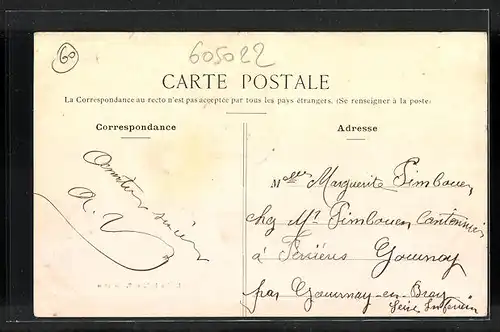 60
605022
CARTE POSTALE
La Correspondance au recto n'est pas acceptée par tous les pays étrangers. (Se renseigner à la poste.
Correspondance
Adresse
Amitiés
A. V
Melle Marguerite Fimbouen
chez Mr Fimbouen Cantonnier
à Gournay
par Gournay-en-Bray
Seine Inférieure